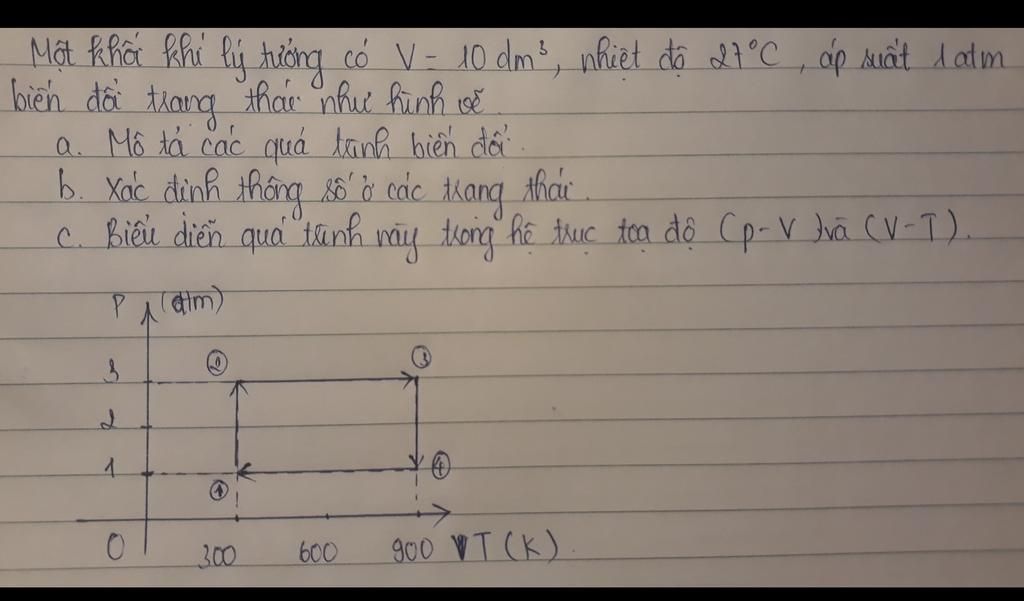 Một khối khí lý tưởng có V = 10 dm³, nhiệt độ 27°C, áp suất 1 atm
biến đổi trạng thái như hình vẽ
a. Mô tả các quá trình biến đổi.
b. Xác định thông số ở các trạng thái.
c. Biểu diễn quá trình này trong hệ trục toạ độ (p-V) và (V-T).
P (atm)
② ③
3
2
1 ④
①
O 300 600 900 T (K)